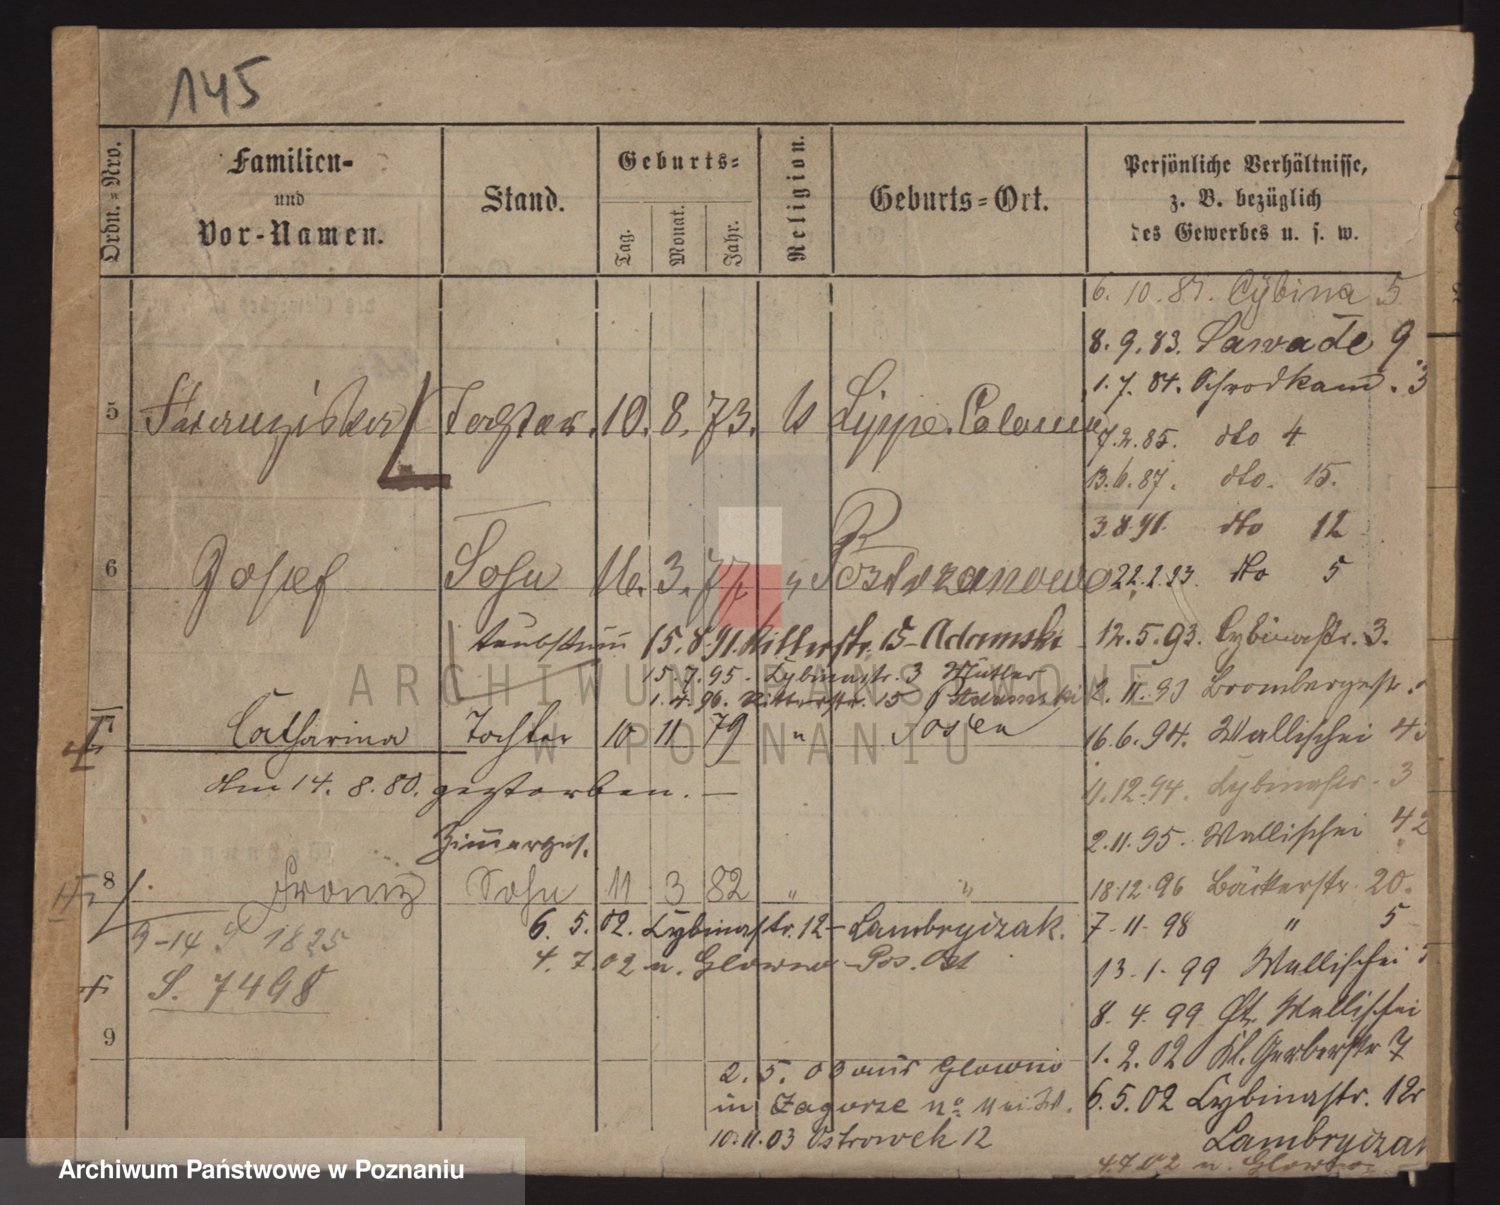 145
Ordn.-Nro.
Familien-
und
Vor-Namen.
Stand.
Geburts-
Tag.
Monat.
Jahr.
Religion.
Geburts-Ort.
Persönliche Verhältnisse,
z. B. bezüglich
des Gewerbes u. s. w.
6. 10. 81. Cybina 5
8. 9. 83. Sawade 9
1. 7. 84. Schrodkam. 3
5 Franziska Tochter. 10. 8. 73. Lippe. Colonie
7. 2. 85. dto 4
13. 6. 87. dto. 15.
3.8.91. dto 12
6 Josef Sohn 16. 3. 77 Postrzanowo
22.2.93 dto 5
taubstum 15. 8. 91. Ritterstr. 15 Adamski
12. 5. 93. Cybinastr. 3.
15. 7. 95. Cybinastr. 3 Müller
1. 4. 96. Ritterstr. 15 Adamski
2. 11. 93 Brombergerstr.
7 Catharina Tochter 10 11 79 " Posen
16. 6. 94. Wallischei 43
am 14. 8. 80. gestorben. —
11. 12. 94. Cybinastr. 3
2. 11. 95. Wallischei 42
Zimmerges.
8 Franz Sohn 11 3 82 " "
18.12.96 Bäckerstr. 20.
6. 5. 02. Cybinastr. 12 - Lambryczak.
7-11-98 " 5
9-14 1825
4. 7 02 n. Glowno - Pos. Ost
13-1-99 Wallischei
S. 7498
8. 4. 99 Wallischei
9
1. 2. 02 Kl. Gerberstr 7
2. 5. 03 aus Glowno
in Zagorze No 11
6. 5. 02 Cybinastr. 12
10.11.03 Ostrowek 12
Lambryczak
4.7.02 n. Glowno
ARCHIWUM PAŃSTWOWE
W POZNANIU
Archiwum Państwowe w Poznaniu